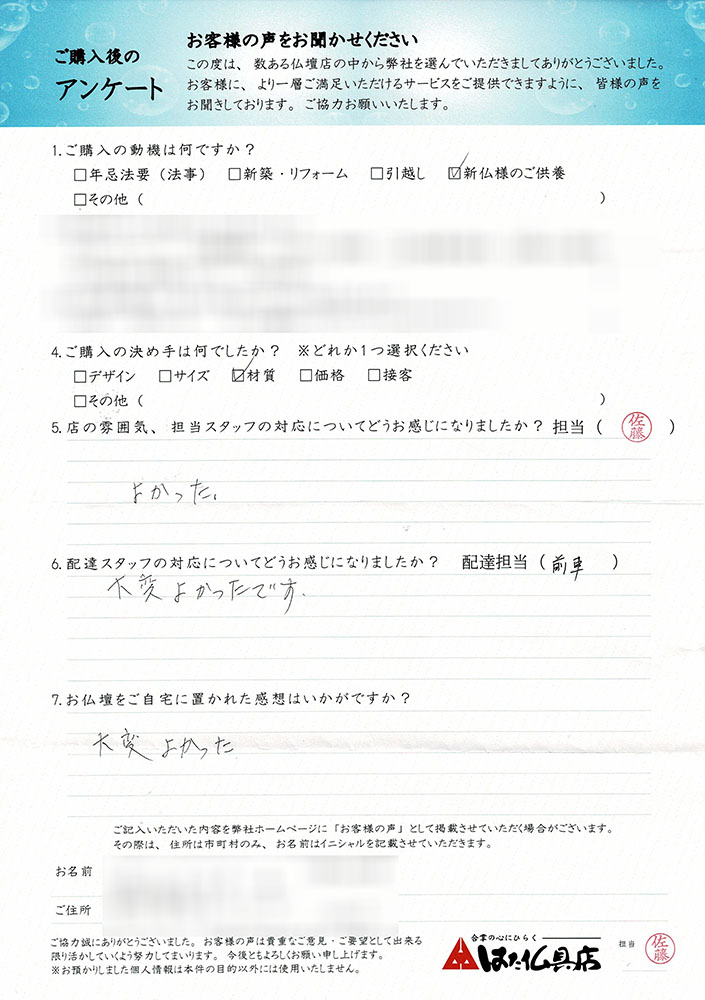 ご購入後の
アンケート
お客様の声をお聞かせください
この度は、数ある仏壇店の中から弊社を選んでいただきましてありがとうございました。
お客様に、より一層ご満足いただけるサービスをご提供できますように、皆様の声を
お聞きしております。ご協力お願いいたします。
1.ご購入の動機は何ですか？
□年忌法要（法事） □新築・リフォーム □引越し ☑新仏様のご供養
□その他（ ）
4.ご購入の決め手は何でしたか？ ※どれか1つ選択ください
□デザイン □サイズ ☑材質 □価格 □接客
□その他（ ）
5.店の雰囲気、担当スタッフの対応についてどうお感じになりましたか？ 担当（ 佐藤 ）
よかった。
6.配達スタッフの対応についてどうお感じになりましたか？ 配達担当（前車 ）
大変よかったです.
7.お仏壇をご自宅に置かれた感想はいかがですか？
大変よかった
ご記入いただいた内容を弊社ホームページに「お客様の声」として掲載させていただく場合がございます。
その際は、住所は市町村のみ、お名前はイニシャルを記載させていただきます。
お名前
ご住所
ご協力誠にありがとうございました。お客様の声は貴重なご意見・ご要望として出来る
限り活かしていくよう努力してまいります。今後ともよろしくお願い申し上げます。
※お預かりしました個人情報は本件の目的以外には使用いたしません。
合掌の心にひらく
はた仏具店
担当 佐藤